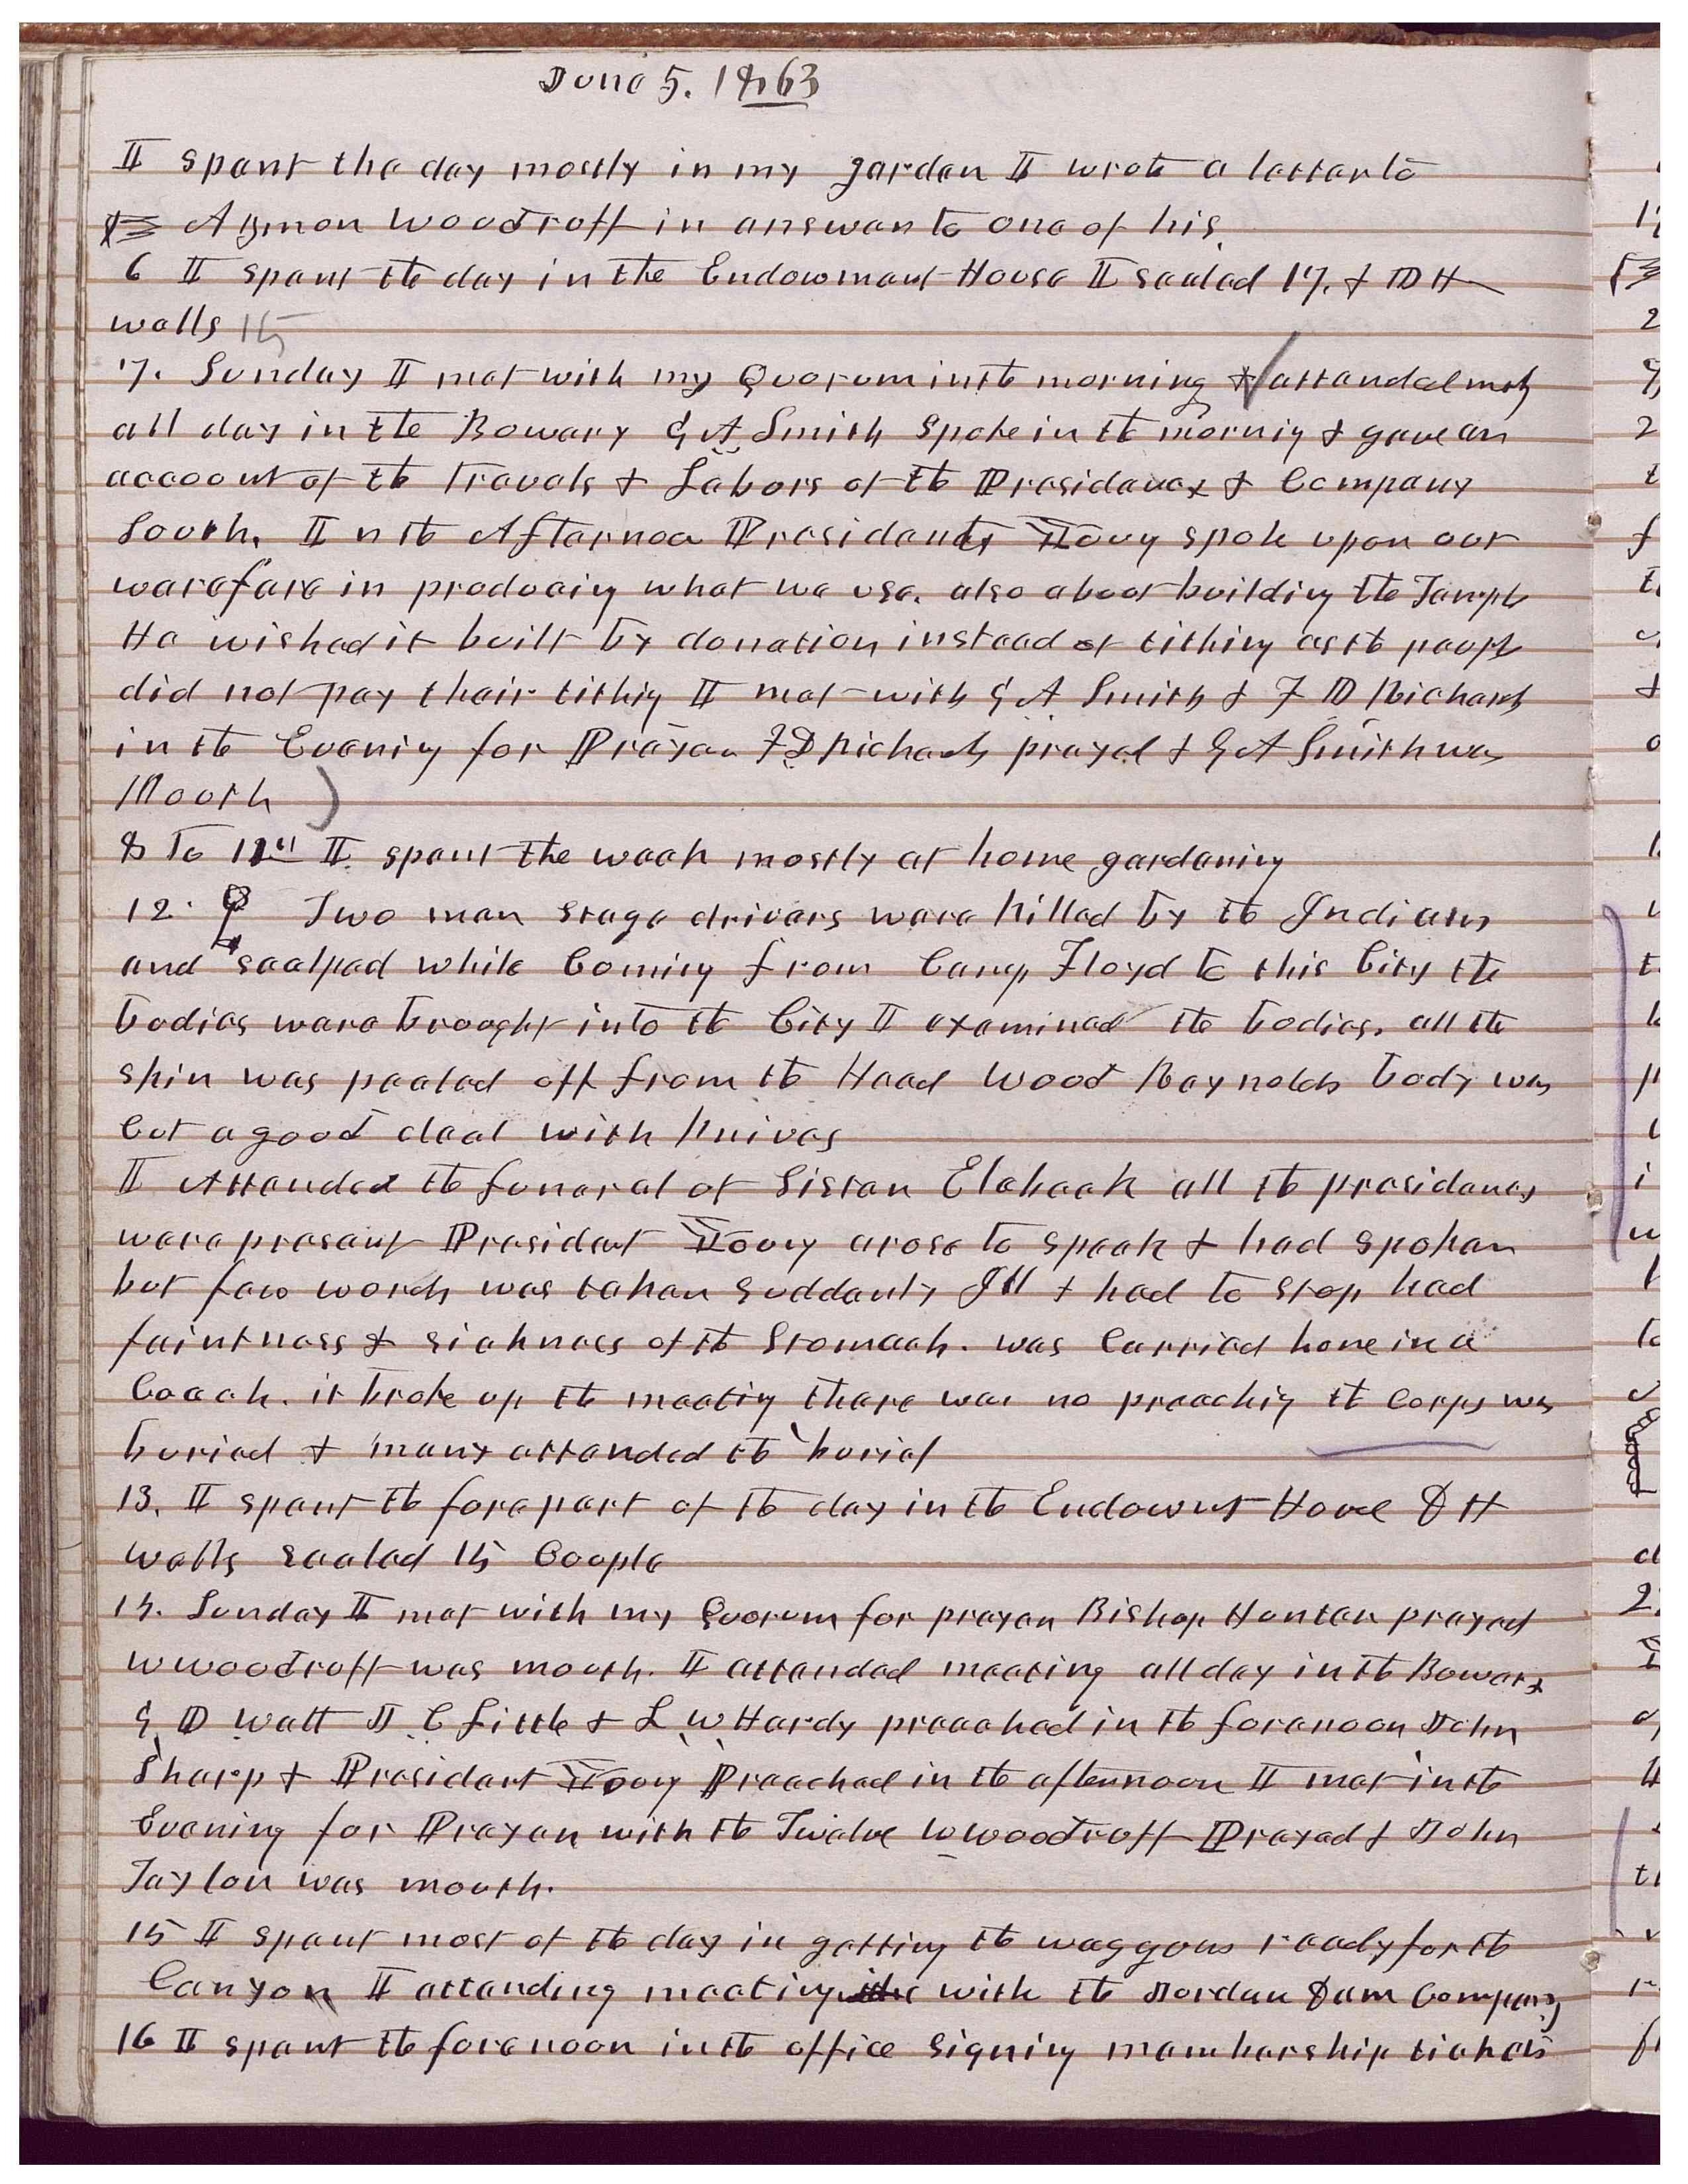 June 5. 1863
I spent the day mostly in my garden I wrote a letter to
Azmon Woodruff in answer to one of his
6 I spent the day in the Endowment House I sealed 17, & D H
wells 15
7. Sunday I met with my Quorum in the morning & attended meeting
all day in the Bowery G A Smith Spoke in the morning & gave an
account of the Travels & Labors of the Presidency & Company
South. I n the Afternoon President Young spoke upon our
warefare in producing what we use. also about building the Temple
He wished it built by donation instead of tithing as the people
did not pay their tithing I met with G A Smith & F D Richards
in the Evening for Prayer F D Richards prayed & G A Smith was
Mouth
8 To 11th I spent the week mostly at home gardening
12. Two men stage drivers were killed by the Indians
and scalped while Coming from Camp Floyd to this City the
bodies were brought into the City I examined the bodies. all the
skin was pealed off from the Head Wood Reynolds body was
Cut a good deal with knives
I Attended the funeral of Sister Elebeck all the presidency
were present President Young arose to speak & had spoken
but few words was taken suddenly Ill & had to stop had
faintness & sickness of the Stomach. was Carried home in a
Coach. it broke up the meeting there was no preaching the Corps was
buried & many attended the burial
13. I spent the forepart of the day in the Endowmt House D H
Wells sealed 15 Couple
14. Sunday I met with my Quorum for prayer Bishop Hunter prayed
W Woodruff was mouth. I attended meeting all day in the Bowery
G D Watt J C Little & L W Hardy preached in the forenoon John
Sharp & President Young Preached in the afternoon I met in the
Evening for Prayer with the Twelve W Woodruff Prayed & John
Taylor was mouth.
15 I spent most of the day in getting the waggons ready for the
Canyon I attending meeting with the Jordan Dam Company
16 I spent the forenoon in the office Signing membership tickets